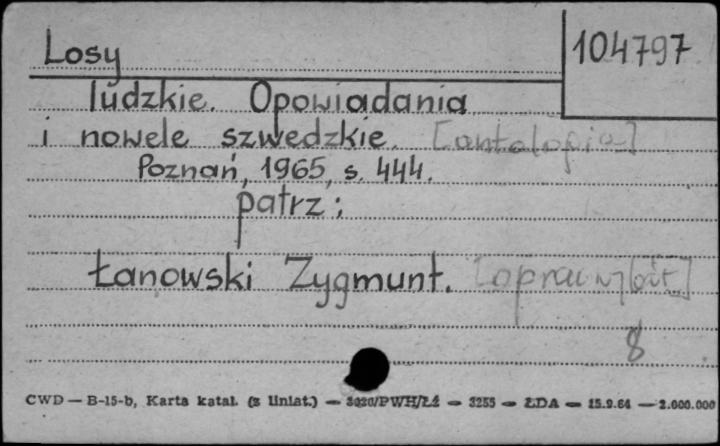 Losy
104797
ludzkie. Opowiadania
i nowele szwedzkie. [antologia]
Poznań, 1965, s. 444.
patrz:
Łanowski Zygmunt. [oprac. wybór]
8
CWD — B-15-b, Karta katal. (z liniat.) — 3020/PWH/Łź — 3255 — ŁDA — 15.9.64 — 2.000.000